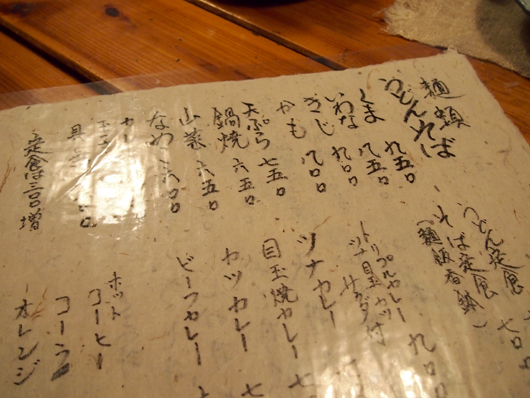 麺類
うどんそば
くま 九五〇
いわな 八五〇
きじ 九〇〇
かも 八〇〇
天ぷら 七五〇
鍋焼 六五〇
山菜 六五〇
なめ 六〇〇
カレー
玉子
定食は三〇〇増
うどん定食
そば定食 七〇
(麺飯香鉢)
トリプルカレー
ツナ目玉カツ付
サラダ 九〇
ツナカレー
目玉焼カレー 七
カツカレー 七
ビーフカレー
ホット
コーヒー
コーラ
オレンジ